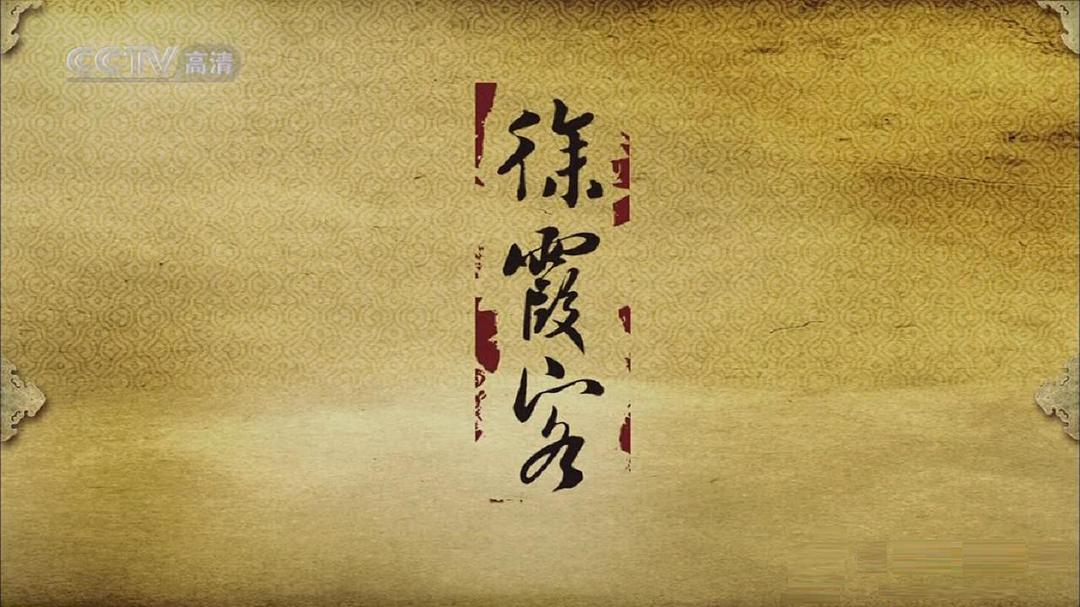 CCTV高清
徐霞客